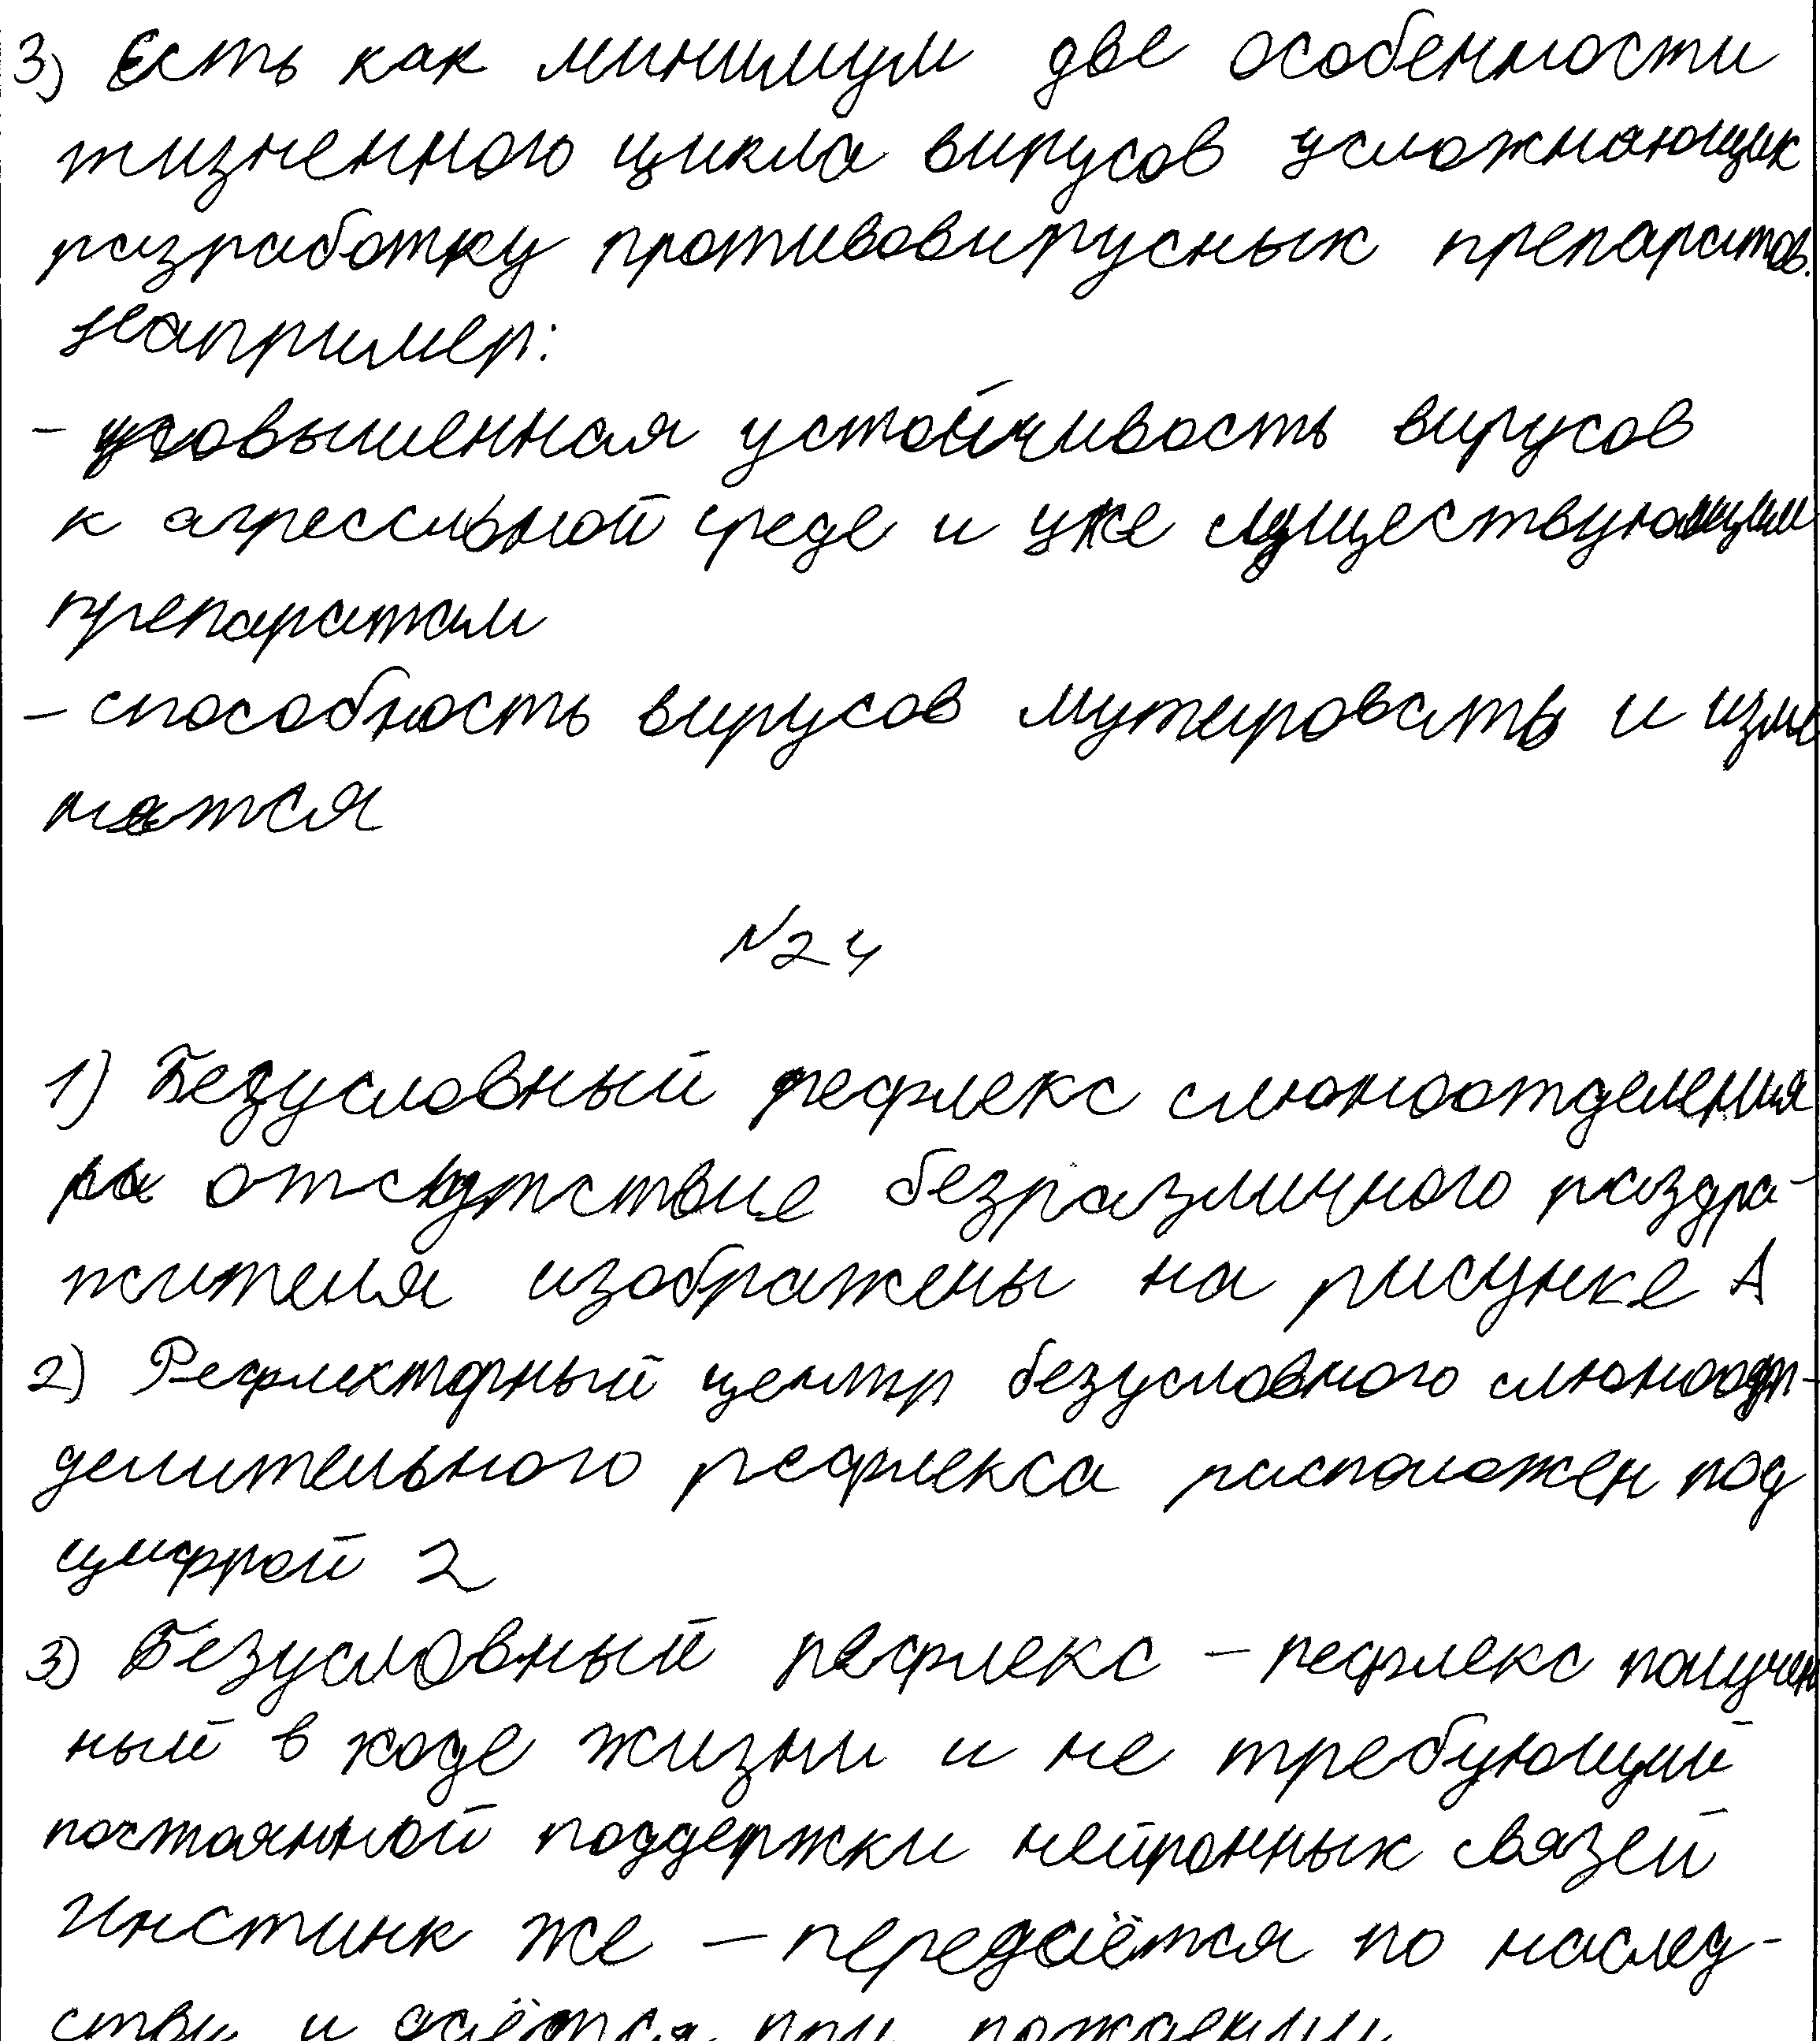 3) Есть как минимум две особенности
жизненного цикла вирусов усложнающих
разработку противовирусных препаратов.
Например:
- повышенная устойчивость вирусов
к агрессивной среде и уже существующим
препаратам
- способность вирусов мутировать и изме
нятся
№24
1) Безусловный рефлекс слюноотделения
на отсутствие безразличного раздра-
жителя изображены на рисунке А
2) Рефлекторный центр безусловного слюноот-
делительного рефлекса расположен под
цифрой 2
3) Безусловный рефлекс - рефлекс получен
ный в ходе жизни и не требующий
постоянной поддержки нейронных связей
Инстинк же - передаётся по наслед-
ству и даётся при рождении